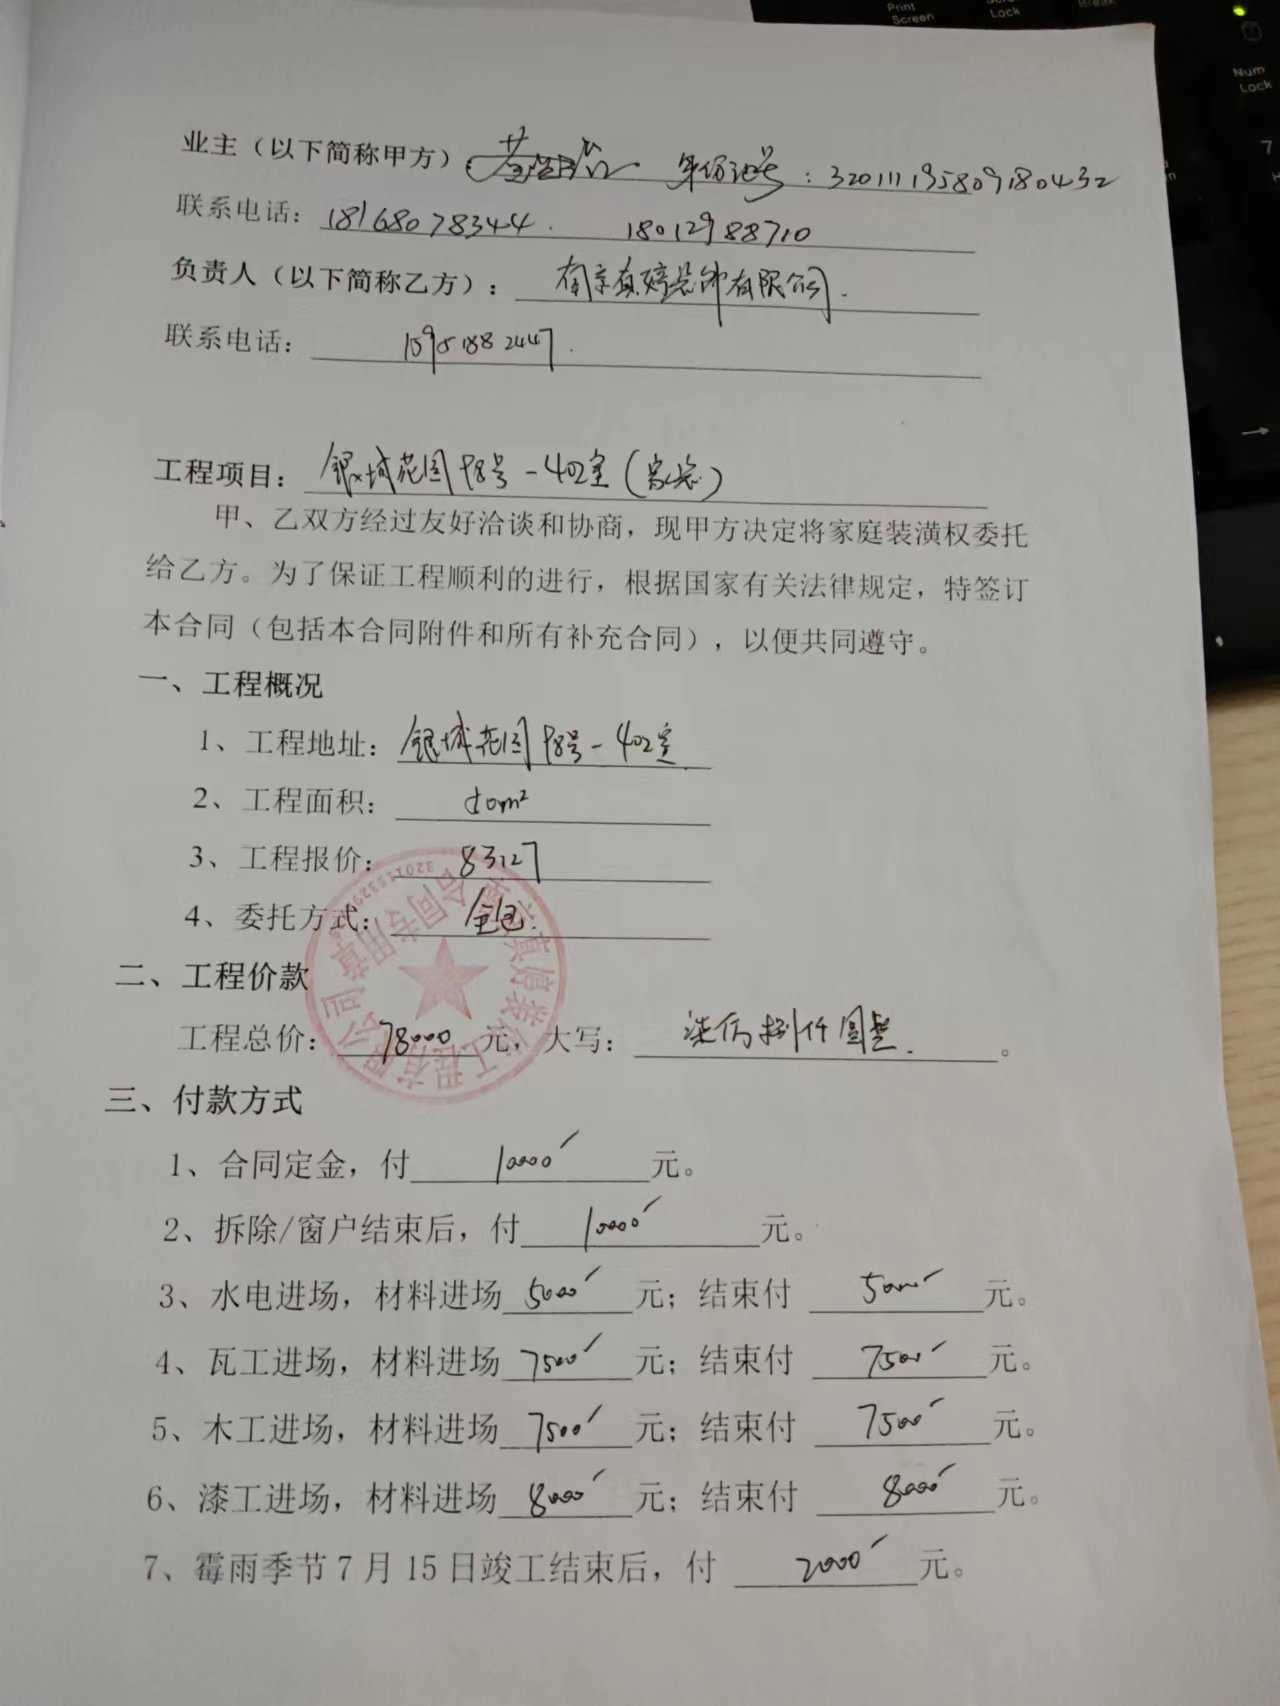 Print
Screen
Lock
Break
Num
Lock
7
业主（以下简称甲方） 身份证号：320111195809180432
联系电话：18168078344. 18012988710
负责人（以下简称乙方）：南京真婷装饰有限公司.
联系电话：15951882447.
工程项目：银城花园98号-402室（
甲、乙双方经过友好洽谈和协商，现甲方决定将家庭装潢权委托
给乙方。为了保证工程顺利的进行，根据国家有关法律规定，特签订
本合同（包括本合同附件和所有补充合同），以便共同遵守。
一、工程概况
1、工程地址：银城花园98号-402室
2、工程面积：
3、工程报价：83127
4、委托方式：全包.
二、工程价款
工程总价：78000元，大写：柒万捌仟圆整.。
三、付款方式
1、合同定金，付10000元。
2、拆除/窗户结束后，付10000元。
3、水电进场，材料进场5000元；结束付 5000元。
4、瓦工进场，材料进场7500元；结束付 7500元。
5、木工进场，材料进场7500元；结束付 7500元。
6、漆工进场，材料进场8000元；结束付 8000元。
7、霉雨季节7月15日竣工结束后，付 2000元。
合同专用章